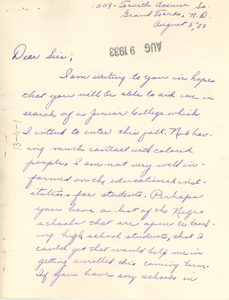 1009 - Fourth Avenue So.
Grand Forks, N. D.
August 5, '33
AUG 9 1933
Dear Sir;
I am writing to you in hopes
that you will be able to aid me in
search of a Junior College which
I intend to enter this fall. Not hav-
ing much contact with colored
people, I am not very well in-
formed on the educational inst-
itutions for students. Perhaps
you have a list of the Negro
schools that are open to teach-
ing high school students, that I
could get that would help me in
getting enrolled this coming term.
If you have any schools in
13-4-1